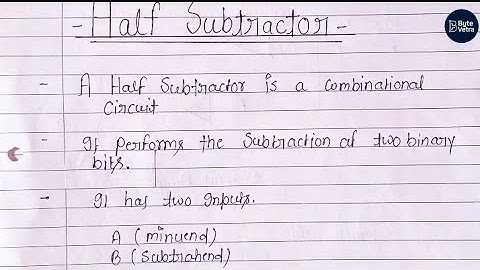 - Half Subtractor -
- A Half Subtractor is a combinational
circuit
- It performs the subtraction of two binary
bits.
- It has two Inputs.
A (minuend)
B (subtrahend)
Byte
Vetra